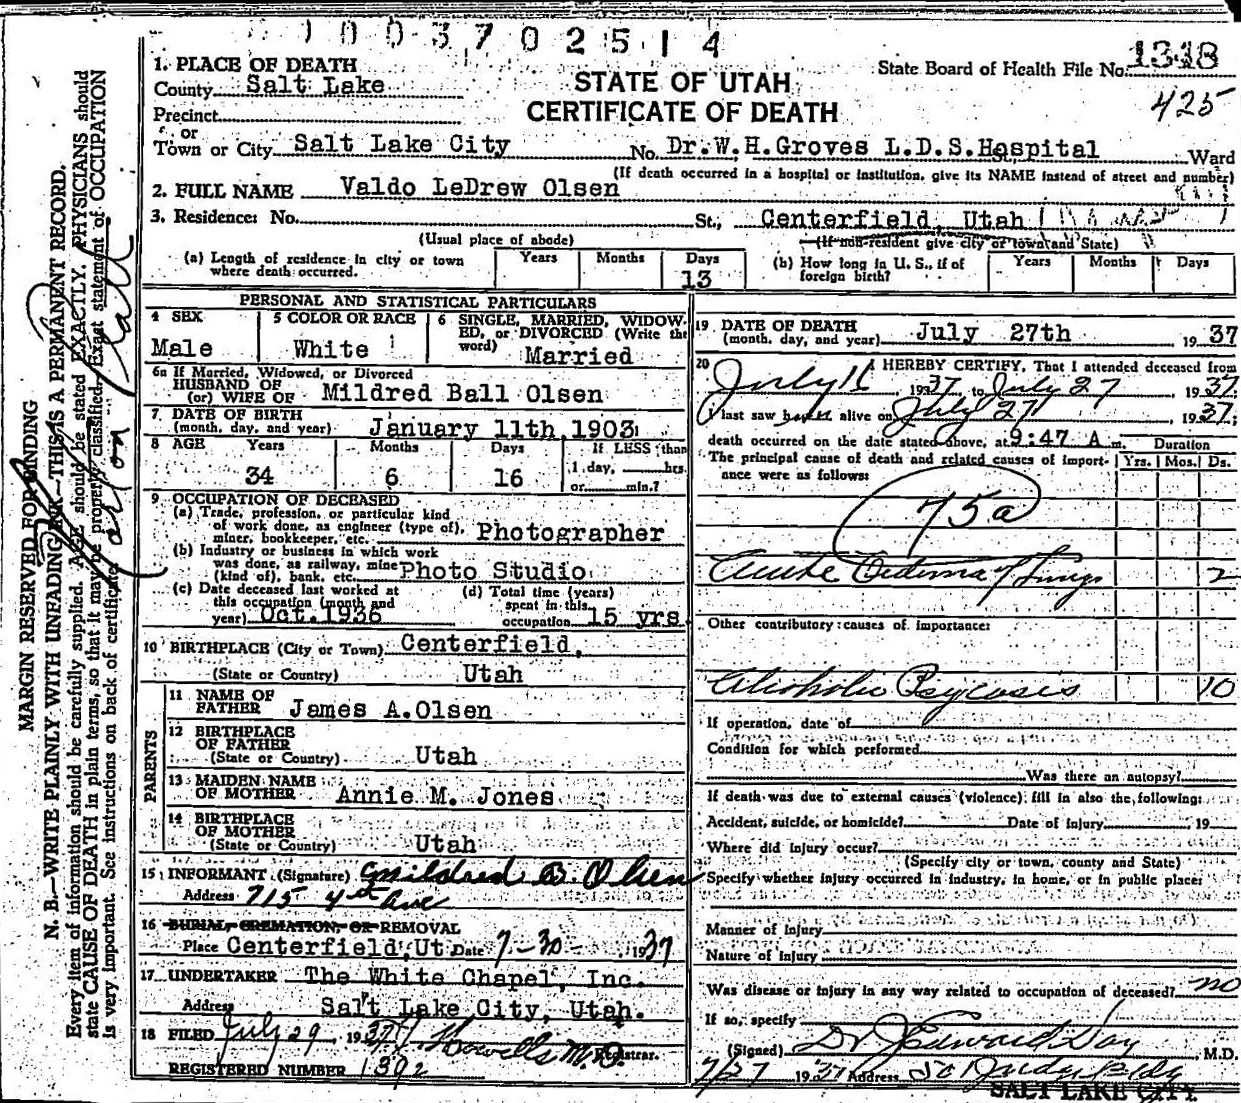 1003702514
State Board of Health File No. 1318
425
STATE OF UTAH
CERTIFICATE OF DEATH
1. PLACE OF DEATH
County Salt Lake
Precinct
or
Town or City Salt Lake City No. Dr. W. H. Groves L.D.S. Hospital St., Ward
(If death occurred in a hospital or institution, give its NAME instead of street and number)
2. FULL NAME Valdo LeDrew Olsen
3. Residence: No. St., Centerfield, Utah
(Usual place of abode) (If non-resident give city or town and State)
(a) Length of residence in city or town where death occurred. Years Months Days 13
(b) How long in U. S., if of foreign birth? Years Months Days
PERSONAL AND STATISTICAL PARTICULARS
4 SEX Male
5 COLOR OR RACE White
6 SINGLE, MARRIED, WIDOWED, or DIVORCED (Write the word) Married
6a If Married, Widowed, or Divorced
HUSBAND OF
(or) WIFE OF Mildred Ball Olsen
7 DATE OF BIRTH
(month, day, and year) January 11th, 1903
8 AGE Years Months Days If LESS than
34 6 16 1 day, hrs.
or min.?
9 OCCUPATION OF DECEASED
(a) Trade, profession, or particular kind
of work done, as engineer (type of),
miner, bookkeeper, etc. Photographer
(b) Industry or business in which work
was done, as railway, mine
(kind of), bank, etc. Photo Studio
(c) Date deceased last worked at
this occupation (month and
year) Oct. 1936
(d) Total time (years)
spent in this
occupation 15 yrs.
10 BIRTHPLACE (City or Town) Centerfield,
(State or Country) Utah
PARENTS
11 NAME OF
FATHER James A. Olsen
12 BIRTHPLACE
OF FATHER
(State or Country) Utah
13 MAIDEN NAME
OF MOTHER Annie M. Jones
14 BIRTHPLACE
OF MOTHER
(State or Country) Utah
15 INFORMANT (Signature) Mildred B. Olsen
Address 715 4th Ave
16 BURIAL, CREMATION, OR REMOVAL
Place Centerfield, Ut Date 7-30- 1937
17 UNDERTAKER The White Chapel, Inc.
Address Salt Lake City, Utah.
18 FILED July 29, 1937 Howells M.D. Registrar.
REGISTERED NUMBER 1392
19 DATE OF DEATH
(month, day, and year) July 27th 1937
20 I HEREBY CERTIFY, That I attended deceased from
July 16 1937 to July 27 1937;
I last saw h alive on July 27 1937;
death occurred on the date stated above, at 9:47 A m.
The principal cause of death and related causes of importance were as follows:
Duration
Yrs. Mos. Ds.
75a
Acute Oedema of Lungs 2
Other contributory causes of importance:
Alcoholic Psycosis 10
If operation, date of
Condition for which performed
Was there an autopsy?
If death was due to external causes (violence) fill in also the following:
Accident, suicide, or homicide? Date of injury 19
Where did injury occur?
(Specify city or town, county and State)
Specify whether injury occurred in industry, in home, or in public place:
Manner of Injury
Nature of Injury
Was disease or injury in any way related to occupation of deceased? no
If so, specify
(Signed) Dr J Edward Day M.D.
7/27 1937 Address Judge Bldg
SALT LAKE CITY
MARGIN RESERVED FOR BINDING
N. B.—WRITE PLAINLY WITH UNFADING INK—THIS IS A PERMANENT RECORD.
Every item of information should be carefully supplied. AGE should be stated EXACTLY. PHYSICIANS should
state CAUSE OF DEATH in plain terms, so that it may be properly classified. Exact statement of OCCUPATION
is very important. See instructions on back of certificate.